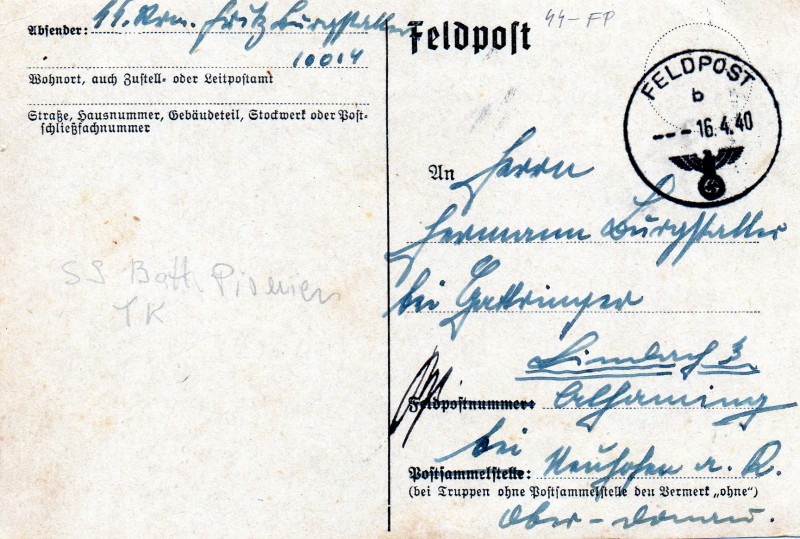 Absender: SS. Krm. Fritz Burgstaller
10014
Wohnort, auch Zustell- oder Leitpostamt
Straße, Hausnummer, Gebäudeteil, Stockwerk oder Post-
schließfachnummer
SS Batl. Pionier
TK
Feldpost
SS-FP
FELDPOST
b
--- 16.4.40
An Herrn
Hermann Burgstaller
bei Gattringer
Limbach 3.
Feldpostnummer: Alhaming
bei
Postsammelstelle: Neuhofen a. K.
(bei Truppen ohne Postsammelstelle den Vermerk „ohne“)
Ober-Donau.